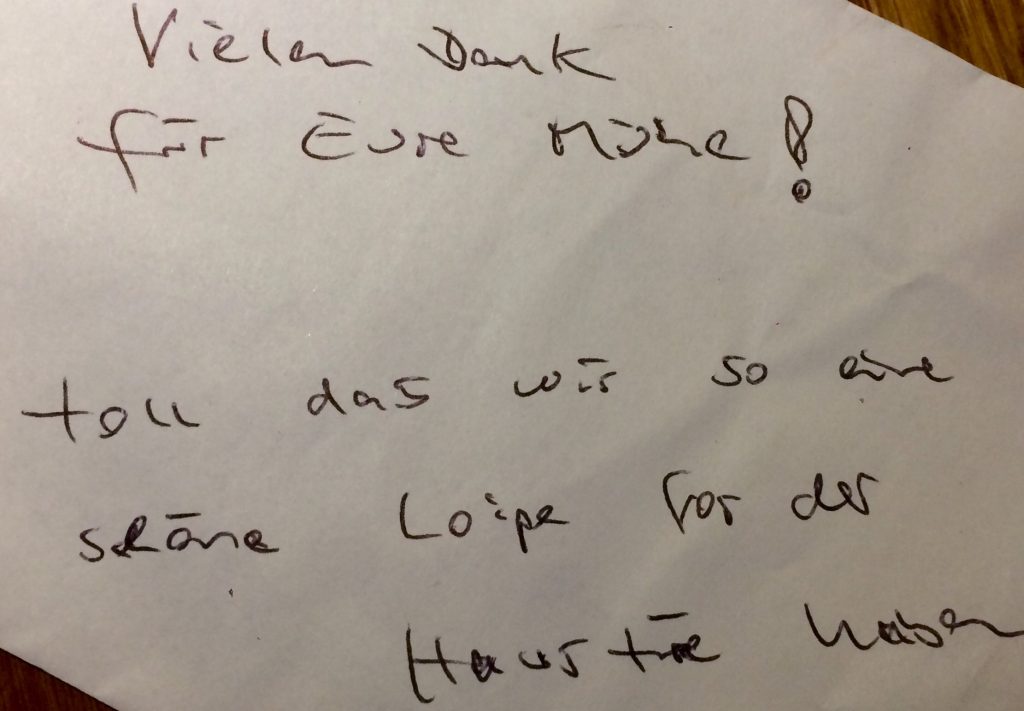 Vielen Dank
für Eure Mühe!
toll das wir so eine
schöne Loipe vor der
Haustüre haben